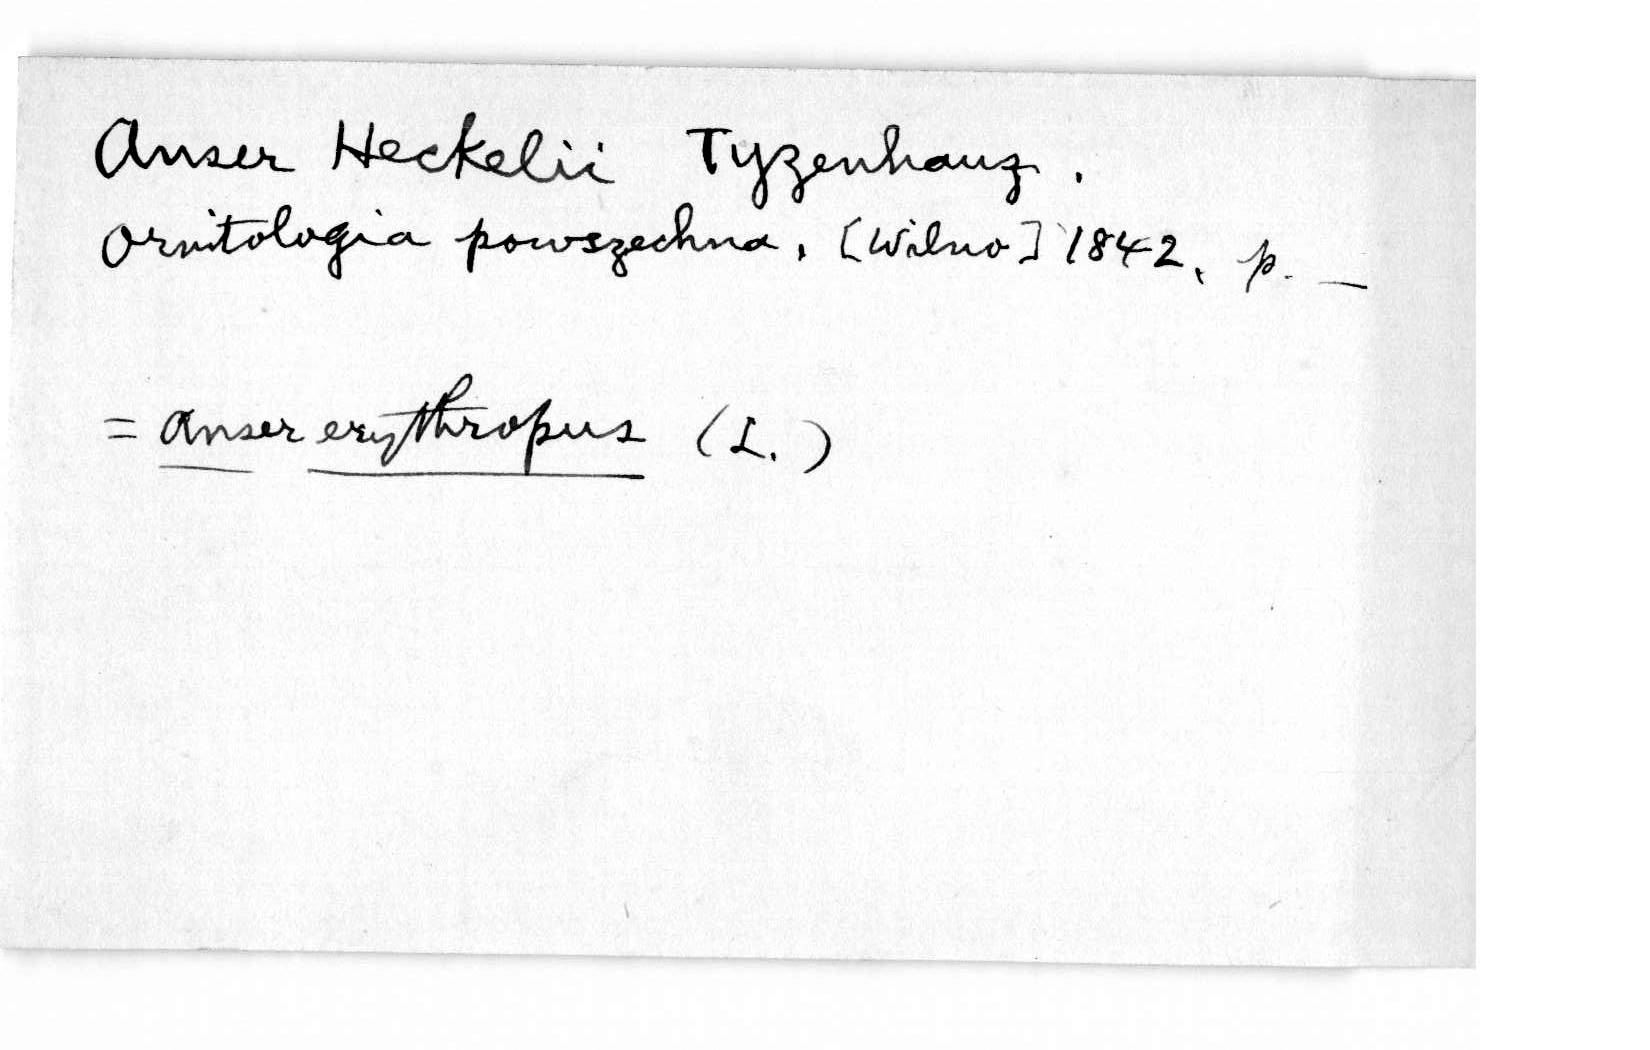 Anser Heckelii Tyzenhauz.
Ornitologia powszechna, [Wilno] 1842, p. —
= Anser erythropus (L.)